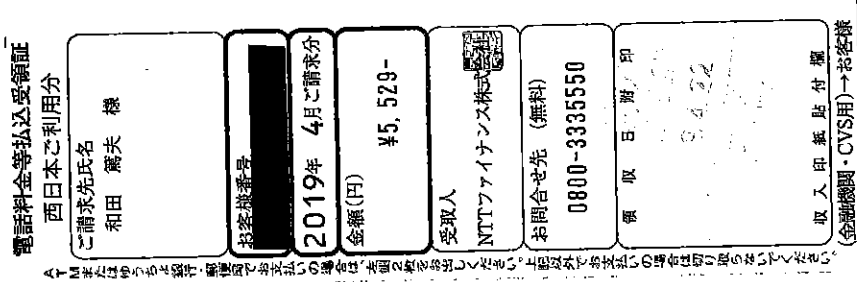 電話料金等払込受領証
西日本ご利用分
ご請求先氏名
和田 篤夫 様
お客様番号
2019年 4月ご請求分
金額(円)
¥5,529-
受取人
NTTファイナンス株式会社
お問合せ先 (無料)
0800-3335550
領収日附印
収入印紙貼付欄
(金融機関・CVS用)→お客様
ATMまたはゆうちょ銀行・郵便局でお支払いの場合は、左側2枚をお出しください。上記以外でお支払いの場合は切り取らないでください。